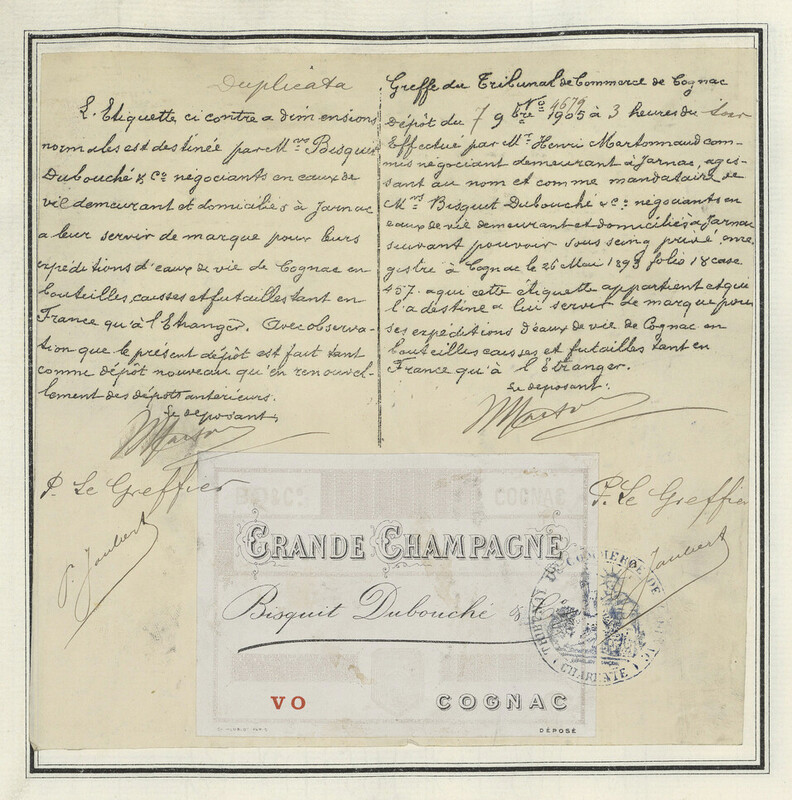 Duplicata
L'Etiquette ci contre a dimensions
normales est destinée par Mrs Bisquit
Dubouché & Co négociants en eaux de
vie demeurant et domiciliés à Jarnac
a leur servir de marque pour leurs
expéditions d'eaux de vie de Cognac en
bouteilles, caisses et futailles tant en
France qu'à l'Etranger. Avec observa-
tion que le présent dépôt est fait tant
comme dépôt nouveau qu'en renouvel-
lement des dépôts antérieurs.
Le deposant,
P. Le Greffier
P. Jaubert
Greffe du Tribunal de Commerce de Cognac
No 4679
Dépôt du 7 9bre 1905 à 3 heures du soir
Effectué par Mr Henri Martonnaud com-
mis négociant demeurant à Jarnac, agis-
sant au nom et comme mandataire de
Mrs Bisquit Dubouché & Co négociants en
eaux de vie demeurant et domiciliés à Jarnac
suivant pouvoir sous seing privé, enre
gistré à Cognac le 26 Mai 1893 folio 18 case
457. a qui cette étiquette appartient et qui
l'a destine a lui servir de marque pour
ses expéditions d'eaux de vie de Cognac en
bouteilles caisses et futailles tant en
France qu'à l'Étranger.
Le deposant:
P. Le Greffier
Jaubert
B.D. & Co.
COGNAC
GRANDE CHAMPAGNE
Bisquit Dubouché & Co
VO
COGNAC
DÉPOSÉ
TRIBUNAL DE COMMERCE DE COGNAC
(CHARENTE)